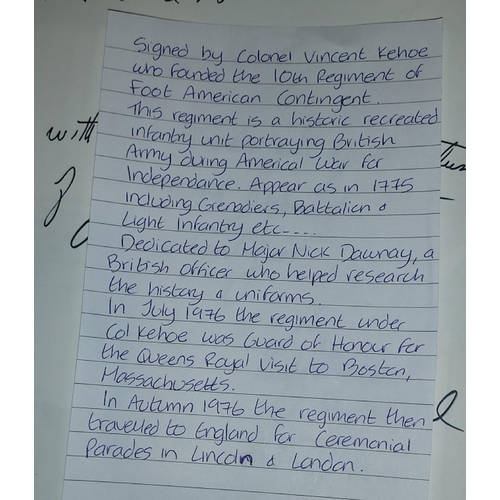 with
Signed by Colonel Vincent Kehoe
who founded the 10th Regiment of
Foot American Contingent.
This regiment is a historic recreated
infantry unit portraying British
Army during Americal War for
Independance. Appear as in 1775
including Grenadiers, Battalion &
Light Infantry etc-....
Dedicated to Major Nick Dawnay, a
British officer who helped research
the history & uniforms.
In July 1976 the regiment under
Col Kehoe was Guard of Honour for
the Queens Royal visit to Boston,
Massachusetts.
In Autumn 1976 the regiment then
travelled to England for Ceremonial
Parades in Lincoln & London.